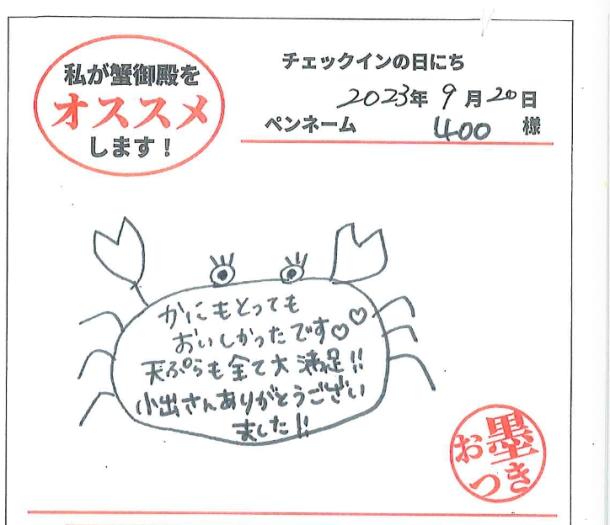 私が蟹御殿を
オススメ
します！
チェックインの日にち
2023年 9月20日
ペンネーム 400 様
かにもとっても
おいしかったです♡♡
天ぷらも全て大満足!!
小出さんありがとうござい
ました!!
お墨
つき